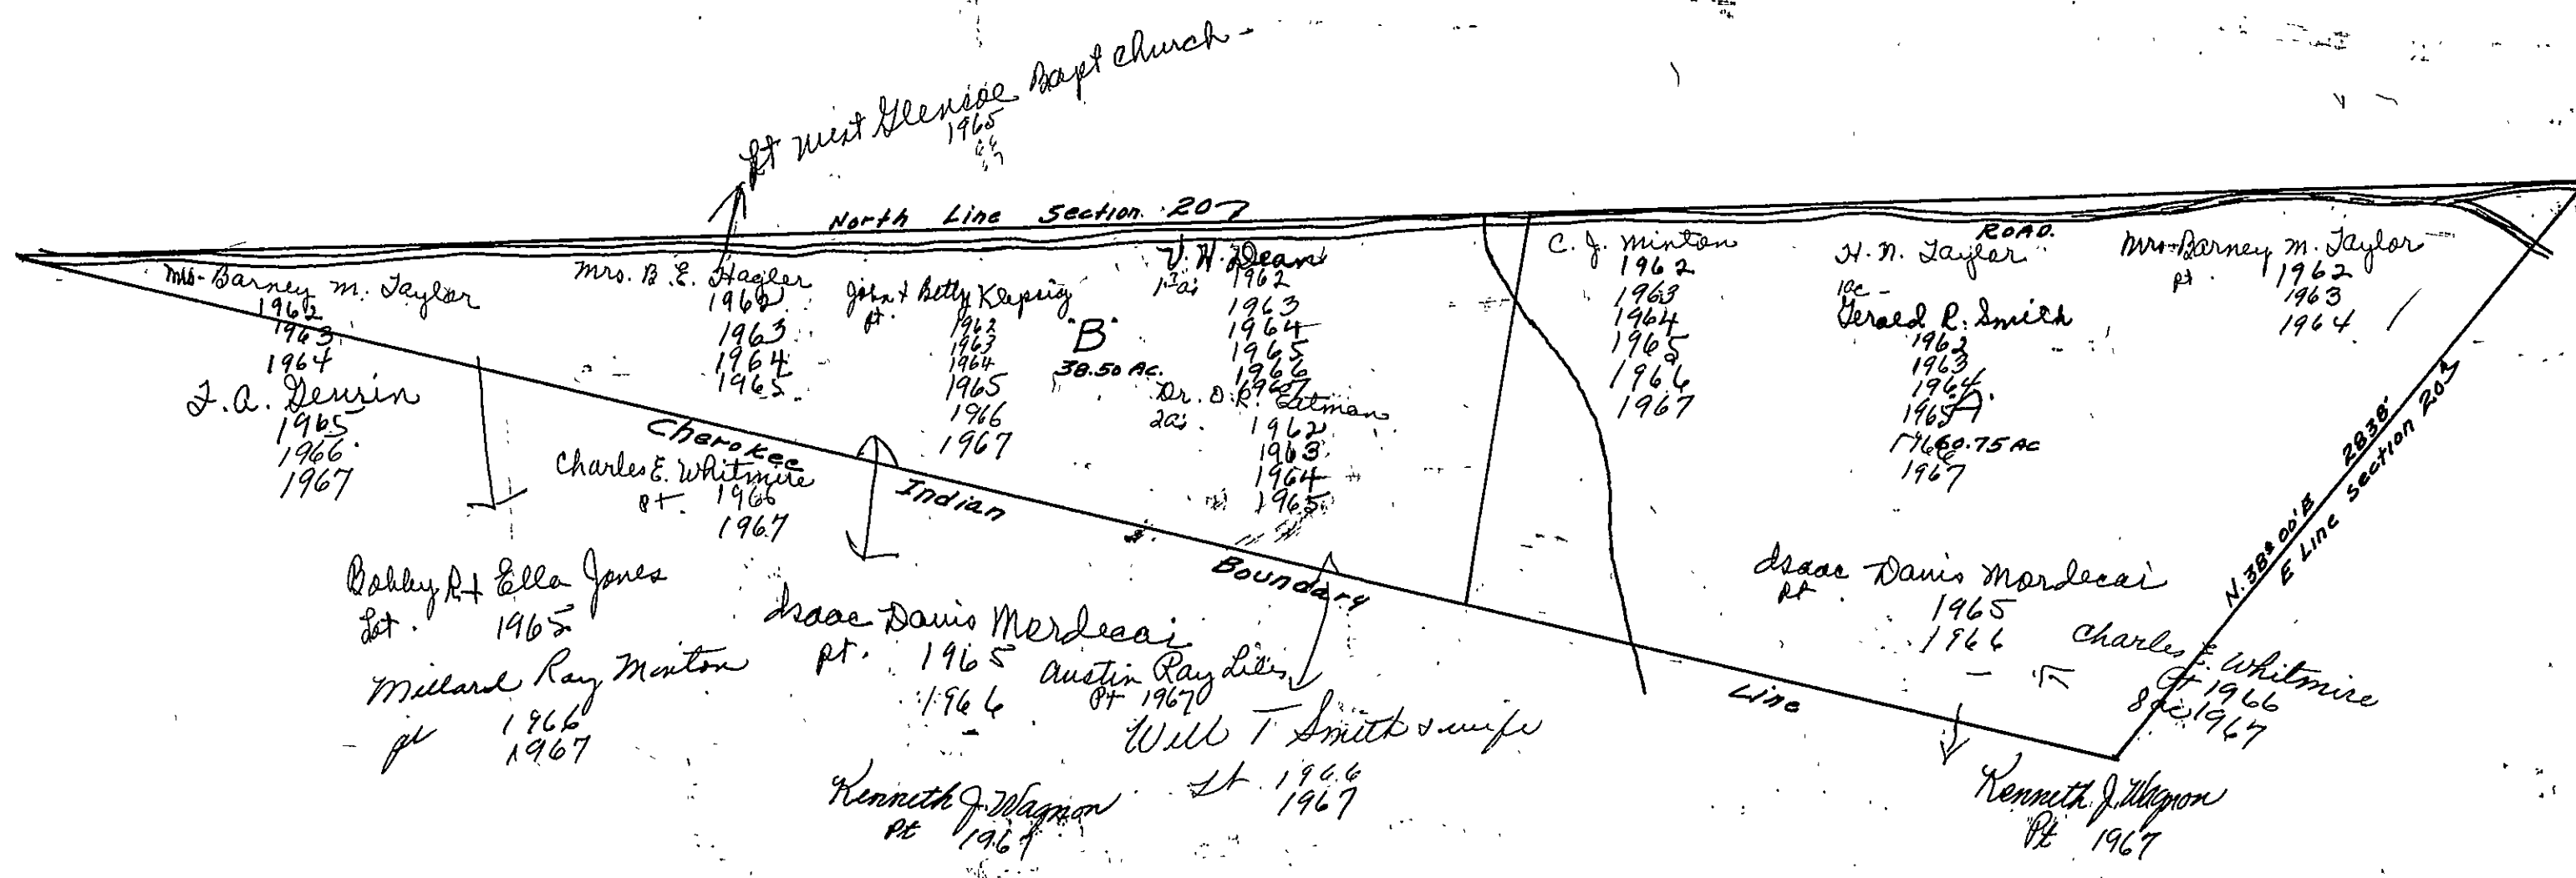 Lt West Glencoe Bapt Church
1965
66
67
North Line Section 207
ROAD.
Mrs. Barney M. Taylor
1962
1963
1964
1965
1966
1967
Mrs. B. E. Hagler
1962
1963
1964
1965
John & Betty Klepsig
pt.
1962
1963
1964
1965
1966
1967
"B"
38.50 AC.
V. H. Dean
1962
1963
1964
1965
1966
1967
Dr. O. R. Eatman
2ac.
1962
1963
1964
1965
C. J. Minton
1962
1963
1964
1965
1966
1967
H. N. Taylor
1ac -
Gerald R. Smith
1962
1963
1964
1965
A.
1966
60.75 AC
1967
Mrs. Barney M. Taylor
pt
1962
1963
1964
2838'
N. 38° 00' E
E Line Section 207
Cherokee Indian Boundary Line
Charles E. Whitmire
pt. 1966
1967
Bobby R & Ella Jones
Lot. 1965
Millard Ray Minton
pt 1966
1967
Isaac Davis Mordecai
pt. 1965
1966
Austin Ray Liles
Pt 1967
Will T Smith & wife
Lt 1966
1967
Kenneth J. Wagnon
Pt 1967
Isaac Davis Mordecai
pt 1965
1966
Charles E. Whitmire
pt 1966
8 ac 1967
Kenneth J. Wagnon
Pt 1967